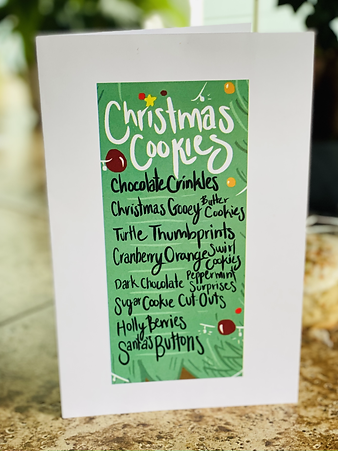 Christmas
Cookies
Chocolate Crinkles
Christmas Gooey Butter Cookies
Turtle Thumbprints
Cranberry Orange Swirl Cookies
Dark Chocolate Peppermint Surprises
Sugar Cookie Cut Outs
Holly Berries
Santa's Buttons